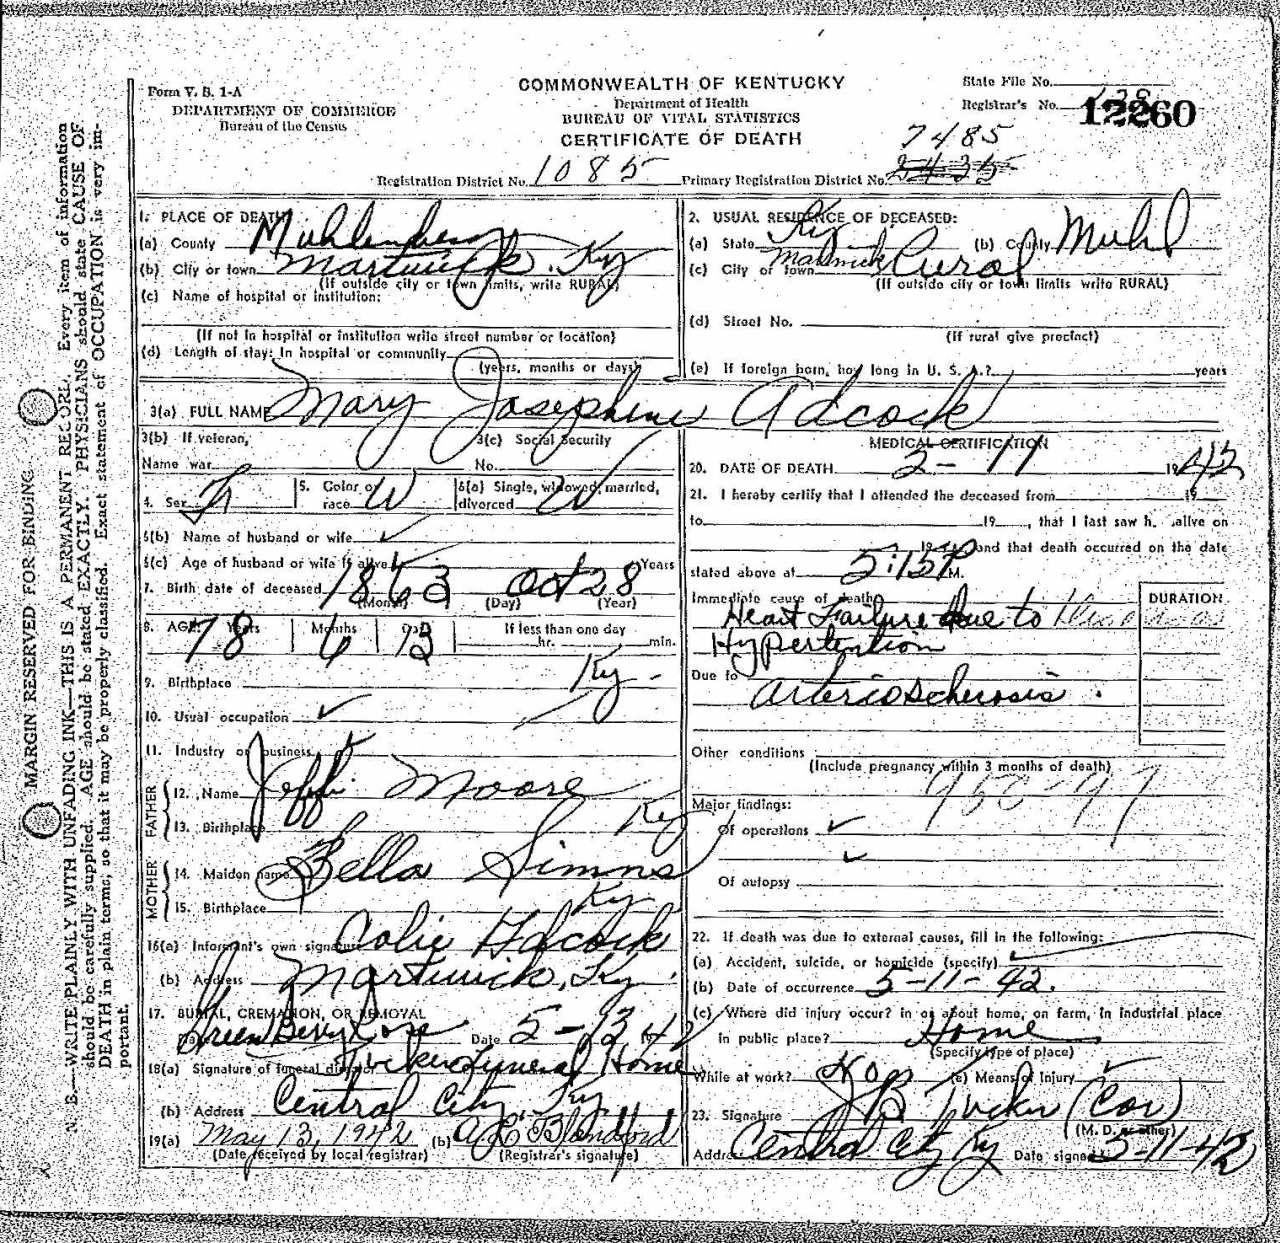 Form V. S. 1-A
DEPARTMENT OF COMMERCE
Bureau of the Census
COMMONWEALTH OF KENTUCKY
Department of Health
BUREAU OF VITAL STATISTICS
CERTIFICATE OF DEATH
State File No.
Registrar's No. 12260
7485
Registration District No. 1085 Primary Registration District No. 2435
1. PLACE OF DEATH
(a) County Muhlenberg
(b) City or town Martwick, Ky
(If outside city or town limits, write RURAL)
(c) Name of hospital or institution:
(If not in hospital or institution write street number or location)
(d) Length of stay: In hospital or community
(years, months or days)
2. USUAL RESIDENCE OF DECEASED:
(a) State Ky (b) County Muhl
(c) City or town Martwick Rural
(If outside city or town limits write RURAL)
(d) Street No.
(If rural give precinct)
(e) If foreign born, how long in U. S. A.? years
3(a) FULL NAME Mary Josephine Adcock
3(b) If veteran, 3(c) Social Security
Name war No.
4. Sex F 5. Color or race W 6(a) Single, widowed, married, divorced W
6(b) Name of husband or wife
6(c) Age of husband or wife if alive Years
7. Birth date of deceased 1863 Oct 28
(Month) (Day) (Year)
8. AGE 78 Years 6 Months 13 Days If less than one day
hr. min.
9. Birthplace Ky.
10. Usual occupation
11. Industry or business
FATHER
12. Name Jeffi Moore
13. Birthplace Ky
MOTHER
14. Maiden name Bella Simms
15. Birthplace Ky
16(a) Informant's own signature Colie Adcock
(b) Address Martwick, Ky.
17. BURIAL, CREMATION, OR REMOVAL
Green Berry Date 5-13 42
18(a) Signature of funeral director Tucker Funeral Home
(b) Address Central City, Ky.
19(a) May 13, 1942 (b) A E Blandford
(Date received by local registrar) (Registrar's signature)
MEDICAL CERTIFICATION
20. DATE OF DEATH 5-11 1942
21. I hereby certify that I attended the deceased from 19
to 19, that I last saw h. alive on
19 and that death occurred on the date
stated above at 5:15 P M.
Immediate cause of death DURATION
Heart Failure due to
Hypertention
Due to
arterioscherosis.
Other conditions
(Include pregnancy within 3 months of death)
Major findings:
Of operations
Of autopsy
22. If death was due to external causes, fill in the following:
(a) Accident, suicide, or homicide (specify)
(b) Date of occurrence 5-11-42.
(c) Where did injury occur? in or about home, on farm, in industrial place
in public place? Home
(Specify type of place)
While at work? No (e) Means of Injury
23. Signature J B Tucker (Cor)
(M. D. or other)
Address Central City Ky Date signed 5-11-42
MARGIN RESERVED FOR BINDING
N. B.—WRITE PLAINLY WITH UNFADING INK—THIS IS A PERMANENT RECORD. Every item of information
should be carefully supplied. AGE should be stated EXACTLY. PHYSICIANS should state CAUSE OF
DEATH in plain terms, so that it may be properly classified. Exact statement of OCCUPATION is very im-
portant.